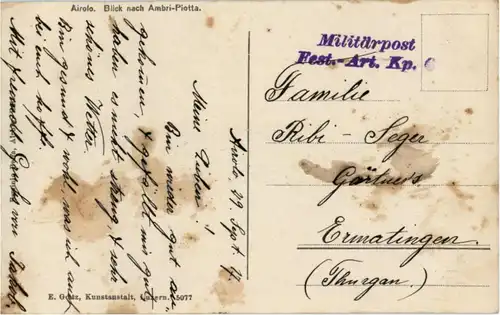 Airolo. Blick nach Ambri-Piotta.
Militärpost
Fest.-Art. Kp. 6
Airolo 29. Sept. 17.
Meine Lieben!
Bin wieder gut an-
gekommen, & gefällt mir gut
haben es nicht streng, & sehr
schönes Wetter.
Bin gesund & wohl, was ich auch
bei euch hoffe.
Mit freundl. Gruß von Jakob.
Familie
Ribi-Seger
Gärtners
Ermatingen.
(Thurgau.)
E. Goetz, Kunstanstalt, Luzern. 5077